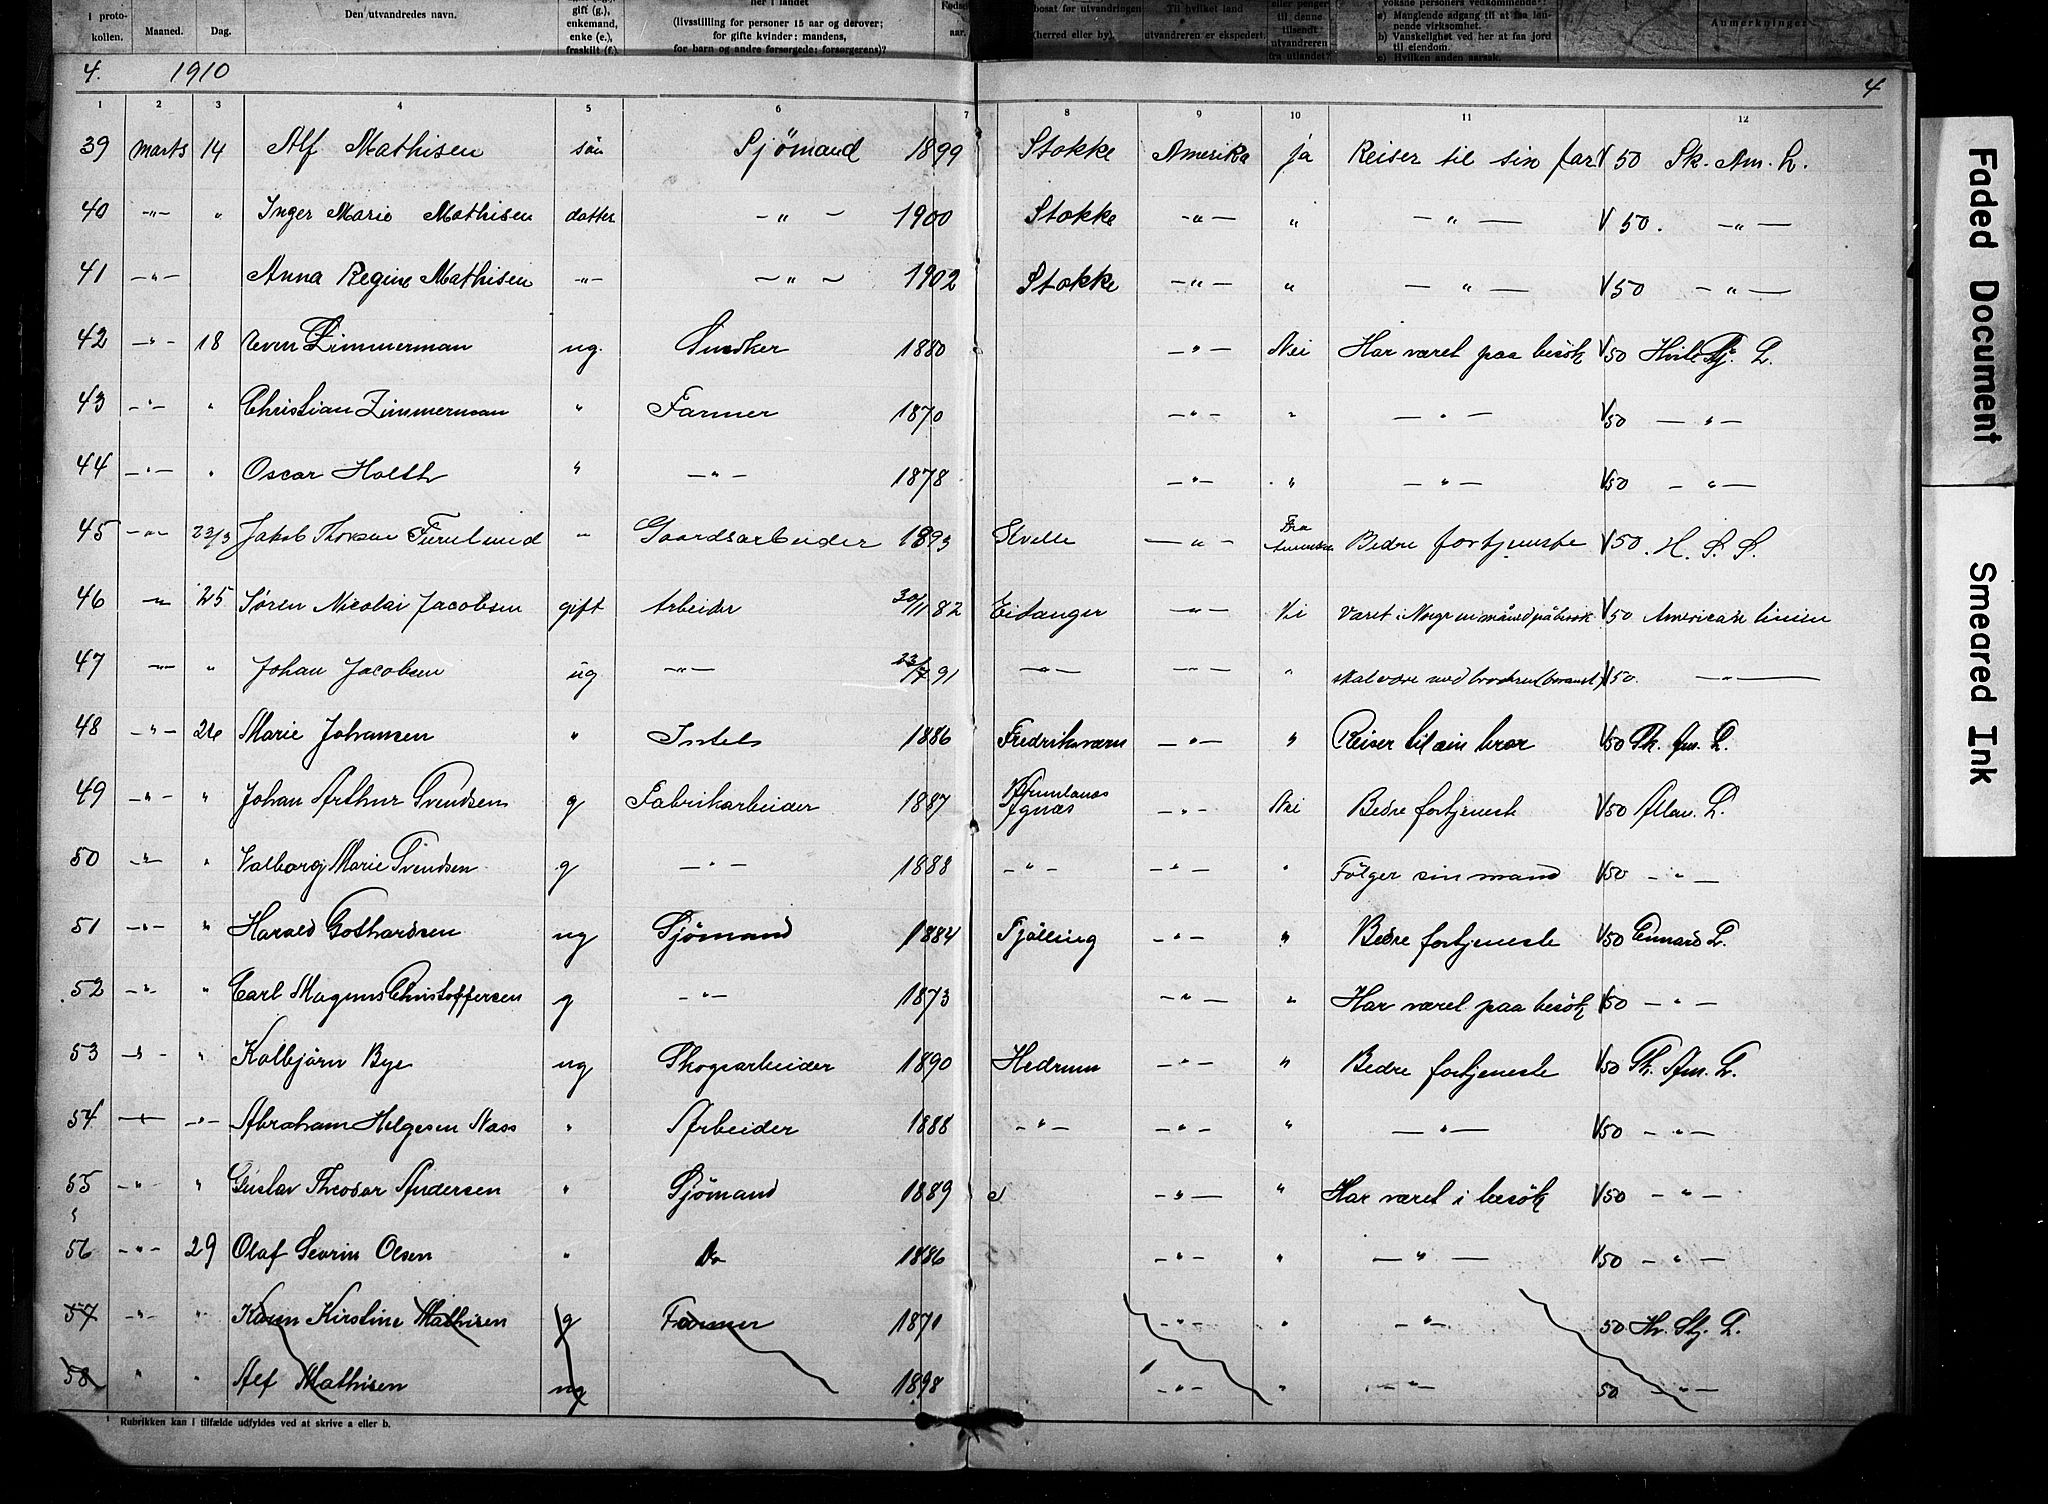 i proto-
kollen. Maaned. Dag. Den utvandredes navn. gift (g.), enkemand, enke (e.), fraskilt (f.) her i landet (livsstilling for personer 15 aar og derover; for gifte kvinder: mandens, for barn og andre forsørgede: forsørgerens)? aar. bosat før utvandringen (herred eller by). Til hvilket land utvandreren er ekspedert. eller penger til denne tilsendt utvandreren fra utlandet? a) Manglende adgang til at faa lønnende virksomhet. b) Vanskelighet ved her at faa jord til eiendom. c) Hvilken anden aarsak. Anmerkninger
4. 1910 4
1 2 3 4 5 6 7 8 9 10 11 12
39 Marts 14 Alf Mathisen sön Sjömand 1899 Stokke Amerika ja Reiser til sin far V 50 Sk. Am. L.
40 -"- " Inger Marie Mathisen datter -"- 1900 Stokke -"- " -"- V 50. -"-
41 -"- Anna Regine Mathisen -"- -"- 1902 Stokke -"- " -"- V 50 -"-
42 -"- 18 Zimmerman ug. Snedker 1880 -"- Nei Har været paa besök V 50 Hvite Stj. L.
43 -"- " Christian Zimmerman " Farmer 1870 -"- " -"- V 50 -"-
44 -"- " Oscar Holth " -"- 1878 -"- " -"- V 50 -"-
45 -"- 23/3 Jakob Furulund " Gaardsarbeider 1893 -"- Fra Amerika Bedre fortjeneste V 50.
46 -"- 25 Søren Nicolai Jacobsen gift Arbeider 30/11 82 Eidanger -"- Nei Været i Norge en måned på besøk V 50 American linien
47 -"- " Johan Jacobsen ug -"- 23/7 91 -"- -"- " skal være med broderen V 50. -"-
48 -"- 26 Marie Johansen " Intet 1886 Fredriksværn -"- " Reiser til sin bror V 50 Sk. Am. L.
49 -"- " Johan Arthur Svendsen g Fabrikarbeider 1887 Brunlanæs Agnæs -"- Nei Bedre fortjeneste V 50 Allan. L.
50 -"- " Valborg Marie Svendsen g -"- 1888 -"- -"- " Fölger sin mand V 50 -"-
51 -"- " Harald Gothardsen ug Sjömand 1884 Tjölling -"- " Bedre fortjeneste V 50 Cunard L.
52 -"- " Carl Magnus Christoffersen g -"- 1873 -"- " Har været paa besök V 50 -"-
53 -"- " Kolbjörn Bye ug Skogsarbeider 1890 Hedrum -"- " Bedre fortjeneste V 50 Sk. Am. L.
54 -"- -"- Abraham Helgesen Nass " Arbeider 1888 -"- -"- " -"- V 50 -"-
55 -"- " Gustav Theodor Andersen " Sjömand 1889 -"- " Har været i besök V 50 -"-
56 -"- 29 Olaf Sevrin Olsen " Do 1886 -"- " -"- V 50 -"-
57 -"- " Karen Kirstine Mathisen g Farmer 1871 -"- " -"- 50 Hv. Stj. L.
58 " " Alf Mathisen ug 1898 -"- " -"- 50 -"-
¹ Rubrikken kan i tilfælde utfyldes ved at skrive a eller b.
Faded Document
Smeared Ink